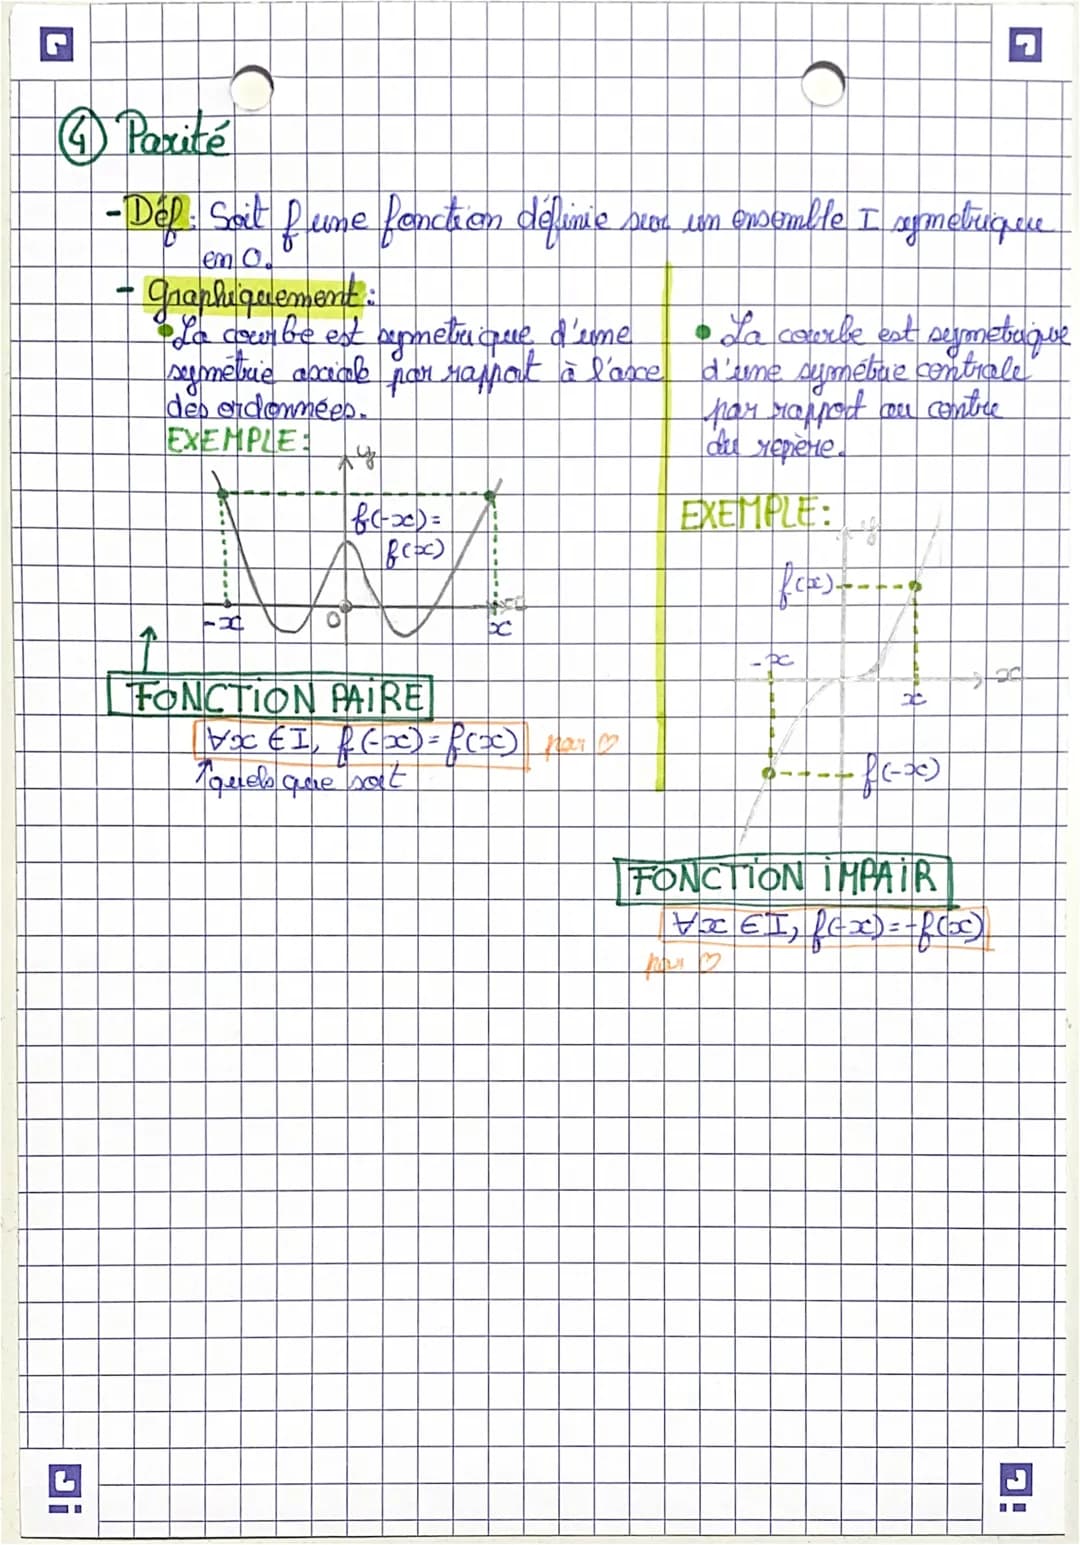 ④ Parité
- Déf: Soit f une fonction définie sur un ensemble I symetrique
en 0.
- Graphiquement:
• La courbe est symetrique d'une
symétrie axciale par rapport à l'axe
des ordonnées.
EXEMPLE:
y
f(-x)=
f(x)
-x
0
x
x
FONCTION PAIRE
∀x ∈ I, f(-x) = f(x) par ♡
↑ quels que soit
• La courbe est symetrique
d'une symétrie centrale
par rapport au centre
du repère.
EXEMPLE:
y
f(x)
-x
x
x
f(-x)
FONCTION IMPAIR
∀x ∈ I, f(-x) = -f(x)
par ♡